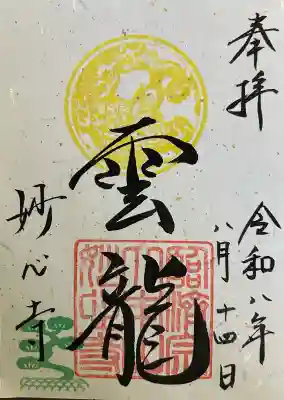 奉拝
令和八年
八月十四日
雲龍
妙心寺